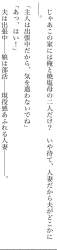 じゃあこの家には俺と熟塩母の二人だけ？　いや待て、人妻だから夫がどこかに
「主人は出張中だから、気を遣わないでね」
「あっ、はい！」
夫は出張中――娘は部活――現役感あふれる人妻――